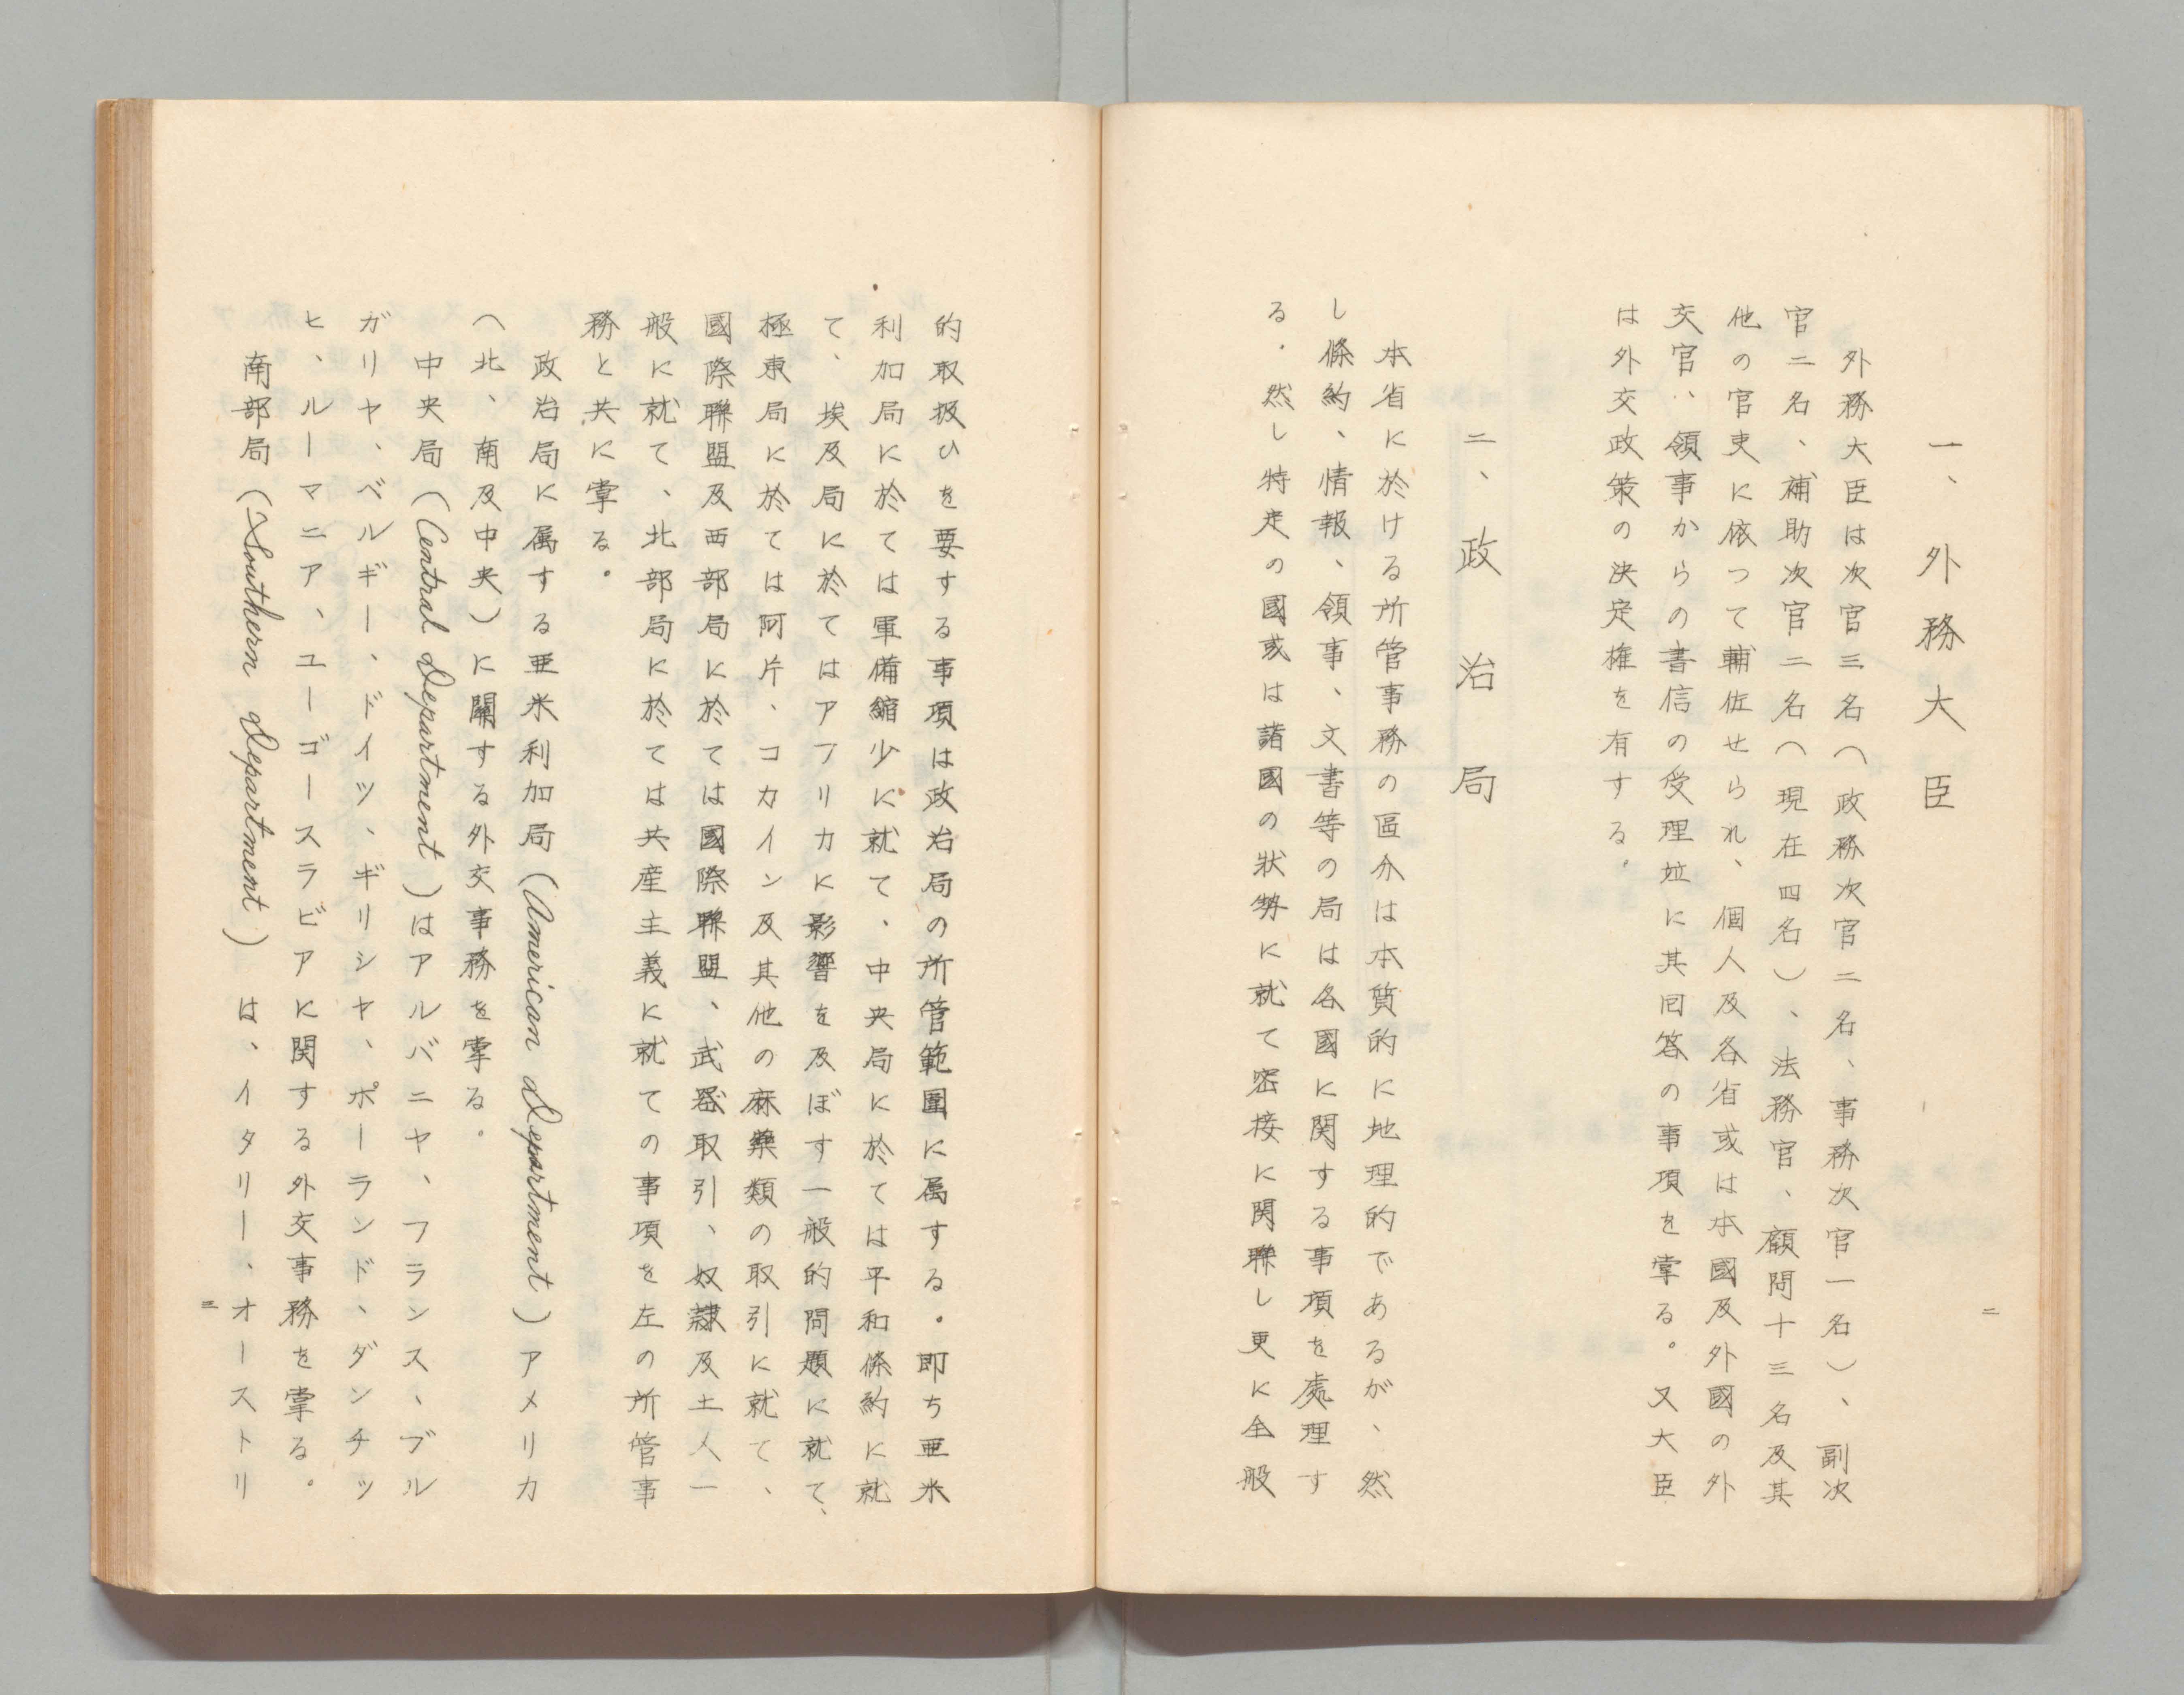 一、外務大臣
外務大臣は次官三名（政務次官二名、事務次官一名）、副次
官二名、補助次官二名（現在四名）、法務官、顧問十三名及其
他の官吏に依つて輔佐せられ、個人及各省或は本國及外國の外
交官、領事からの書信の受理竝に其回答の事項を掌る。又大臣
は外交政策の決定権を有する。
二、政治局
本省に於ける所管事務の區分は本質的に地理的であるが、然
し條約、情報、領事、文書等の局は各國に関する事項を處理す
る。然し特定の國或は諸國の狀勢に就て密接に関聯し更に全般
二
的取扱ひを要する事項は政治局の所管範圍に属する。即ち亜米
利加局に於ては軍備縮少に就て、中央局に於ては平和條約に就
て、埃及局に於てはアフリカに影響を及ぼす一般的問題に就て、
極東局に於ては阿片、コカイン及其他の麻藥類の取引に就て、
國際聯盟及西部局に於ては國際聯盟、武器取引、奴隷及土人一
般に就て、北部局に於ては共産主義に就ての事項を左の所管事
務と共に掌る。
政治局に属する亜米利加局（American Department）アメリカ
（北、南及中央）に關する外交事務を掌る。
中央局（Central Department）はアルバニヤ、フランス、ブル
ガリヤ、ベルギー、ドイツ、ギリシヤ、ポーランド、ダンチッ
ヒ、ルーマニア、ユーゴースラビアに関する外交事務を掌る。
南部局（Southern Department）は、イタリー、オーストリ
三